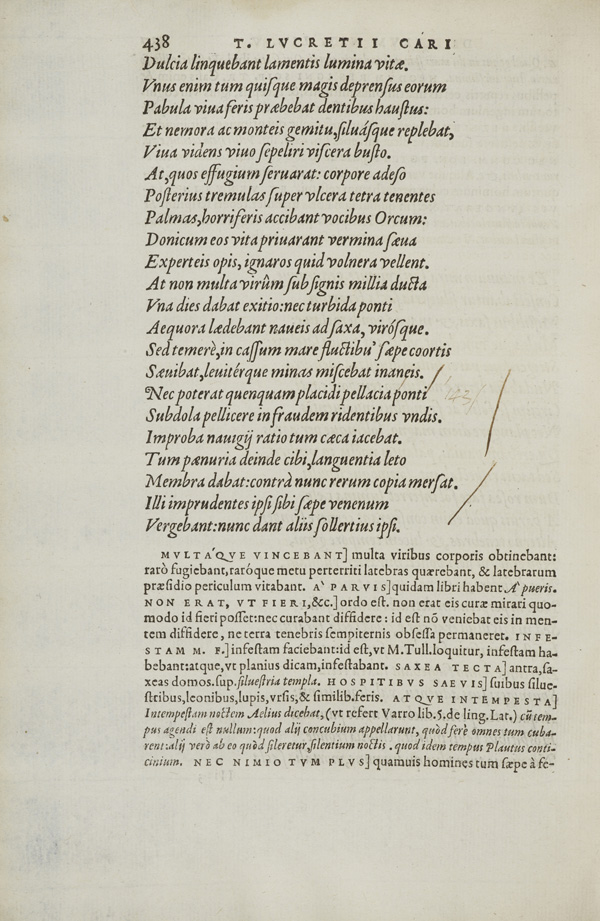 438 T. LVCRETII CARI
Dulcia linquebant lamentis lumina vitæ.
Vnus enim tum quisque magis deprensus eorum
Pabula viua feris præbebat dentibus haustus:
Et nemora ac monteis gemitu, siluásque replebat,
Viua videns viuo sepeliri viscera busto.
At, quos effugium seruarat: corpore adeso
Posterius tremulas super vlcera tetra tenentes
Palmas, horriferis accibant vocibus Orcum:
Donicum eos vita priuarant vermina sæua
Experteis opis, ignaros quid volnera vellent.
At non multa virûm sub signis millia ducta
Vna dies dabat exitio: nec turbida ponti
Aequora lædebant naueis ad saxa, virósque.
Sed temerè, in cassum mare fluctibu' sæpe coortis
Sæuibat, leuitérque minas miscebat inaneis.
Nec poterat quenquam placidi pellacia ponti
Subdola pellicere in fraudem ridentibus vndis.
Improba nauigij ratio tum cæca iacebat.
Tum pænuria deinde cibi, languentia leto
Membra dabat: contrà nunc rerum copia mersat.
Illi imprudentes ipsi sibi sæpe venenum
Vergebant: nunc dant aliis sollertius ipsi.
MVLTA´QVE VINCEBANT] multa viribus corporis obtinebant:
rarò fugiebant, raróque metu perterriti latebras quærebant, & latebrarum
præsidio periculum vitabant. A` PARVIS] quidam libri habent A` pueris.
NON ERAT, VT FIERI, &c.] ordo est. non erat eis curæ mirari quo-
modo id fieri posset: nec curabant diffidere: id est nō veniebat eis in men-
tem diffidere, ne terra tenebris sempiternis obsessa permaneret. INFE-
STAM M. F.] infestam faciebant: id est, vt M. Tull. loquitur, infestam ha-
bebant: atque, vt planius dicam, infestabant. SAXEA TECTA] antra, sa-
xeas domos. sup. siluestria templa. HOSPITIBVS SAEVIS] suibus silue-
stribus, leonibus, lupis, vrsis, & similib. feris. ATQVE INTEMPESTA]
Intempestam noctem Aelius dicebat, (vt refert Varro lib. 5. de ling. Lat.) cũ tem-
pus agendi est nullum: quod alij concubium appellarunt, quòd ferè omnes tum cuba-
rent: alij verò ab eo quòd sileretur, silentium noctis. quod idem tempus Plautus conti-
cinium. NEC NIMIO TVM PLVS] quamuis homines tum sæpe à fe-